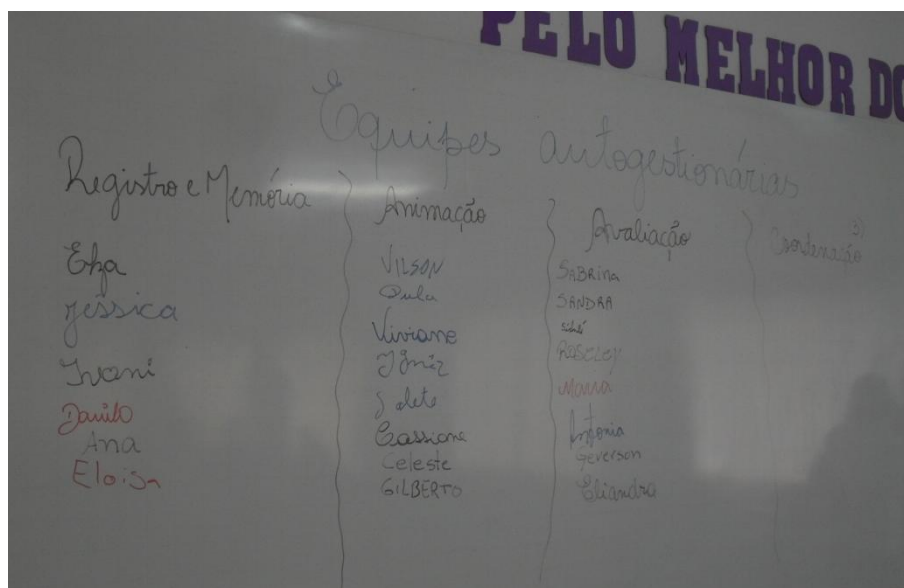 PELO MELHOR DO
Equipes autogestionárias
Registro e Memória
Jéssica
Ivani
Danilo
Ana
Eloisa
Animação
VILSON
Viviane
Salete
Cassiane
Celeste
GILBERTO
Avaliação
SABRINA
SANDRA
ROSELEY
Maria
Antonia
Geverson
Eliandra
Coordenação